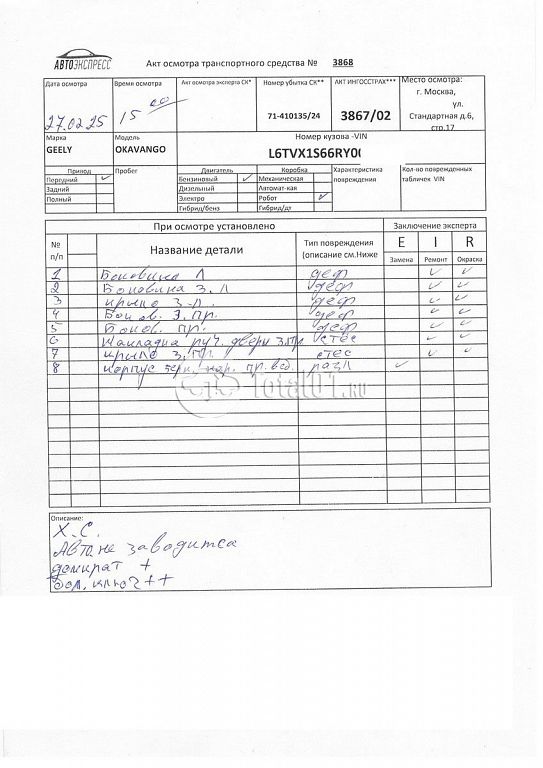 АВТОЭКСПРЕСС
Акт осмотра транспортного средства № 3868
Дата осмотра
27.02.25
Время осмотра
15 00
Акт осмотра эксперта СК*
Номер убытка СК**
71-410135/24
АКТ ИНГОССТРАХ***
3867/02
Место осмотра:
г. Москва,
ул.
Стандартная д.6,
стр.17
Марка
GEELY
Модель
OKAVANGO
Номер кузова -VIN
L6TVX1S66RY0
Привод
Передний ✓
Задний
Полный
Пробег
Двигатель
Бензиновый ✓
Дизельный
Электро
Гибрид/бенз
Коробка
Механическая
Автомат-кая
Робот ✓
Гибрид/дт
Характеристика
повреждения
Кол-во поврежденных
табличек VIN
При осмотре установлено
Заключение эксперта
№
п/п
Название детали
Тип повреждения
(описание см.Ниже
E I R
Замена Ремонт Окраска
1 Боковина Л деф ✓ ✓
2 Боковина З.Л деф ✓ ✓
3 крыло З.Л. деф ✓ ✓
4 Боков. З.Пр. деф ✓ ✓
5 Боков. Пр. деф ✓ ✓
6 Накладка руч. двери З.Пр. стес ✓ ✓
7 крыло З.Пр. стес ✓ ✓
8 корпус зерк. нар. пр. разл ✓
Total01.RU
Описание:
Х.С.
Авто не заводится
домкрат +
бал. ключ ++